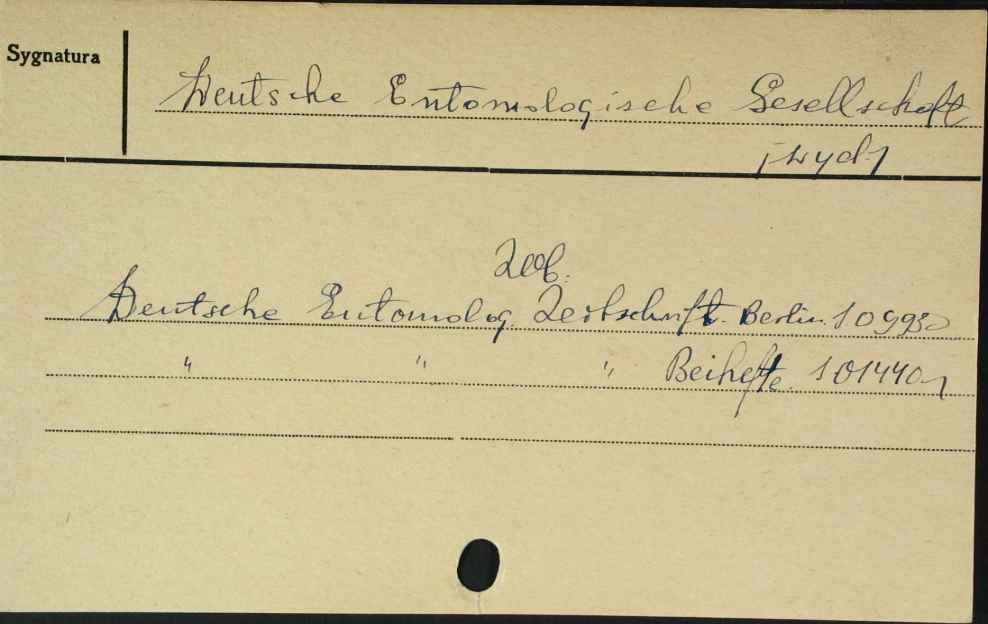 Sygnatura
Deutsche Entomologische Gesellschaft
/wyd/
Zob:
Deutsche Entomolog. Zeitschrift. Berlin.
" " " Beihefte. 101440